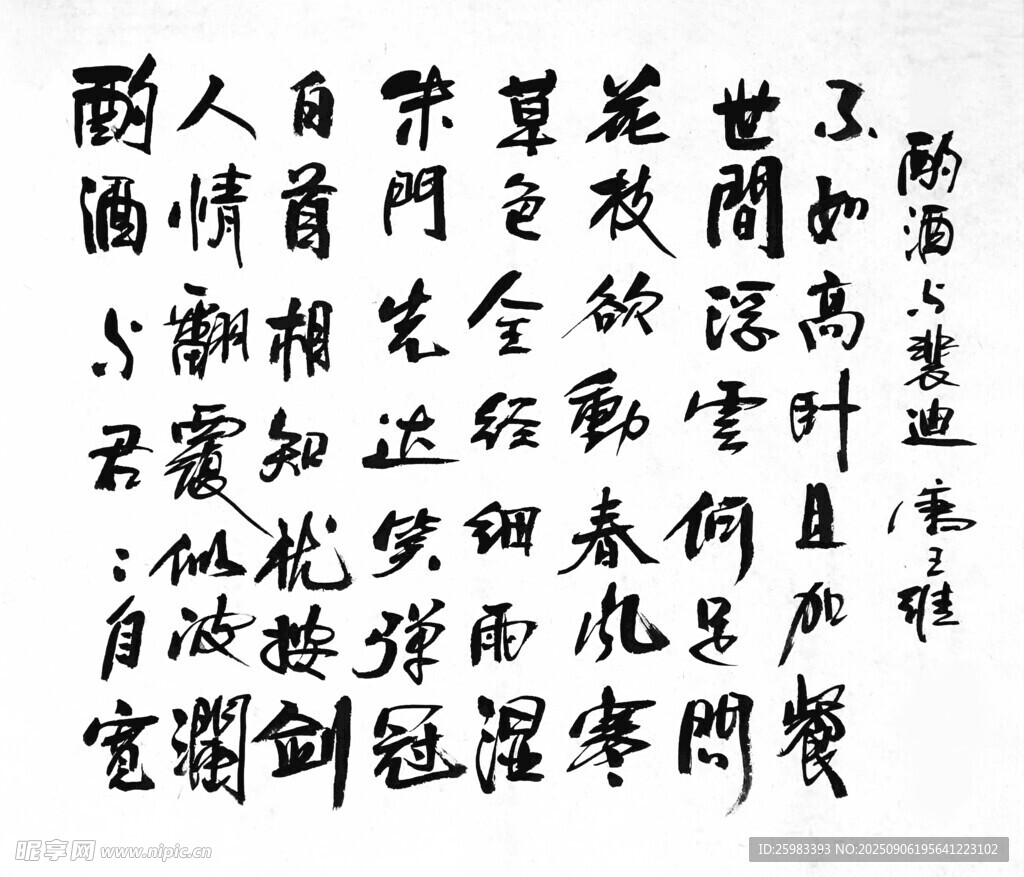 酌酒与君〻自宽
人情翻覆似波瀾
白首相知犹按剑
朱門先达笑弹冠
草色全经细雨湿
花枝欲動春风寒
世間浮雲何足問
不如高卧且加餐
酌酒与裴迪 唐王维
昵享网 www.nipic.cn
ID:25983393 NO:20250906195641223102